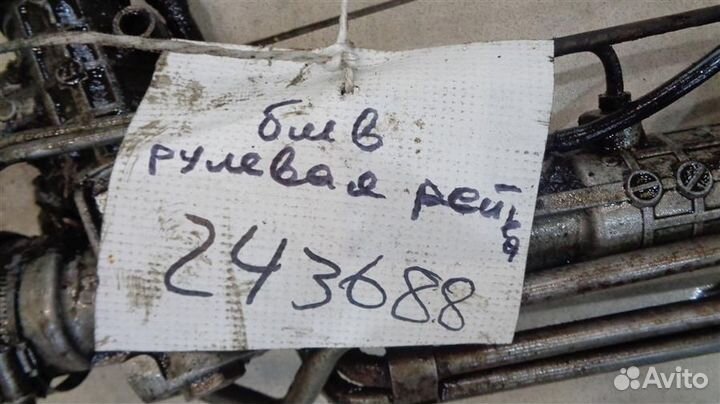 бмв
рулевая рейка
243688
Avito